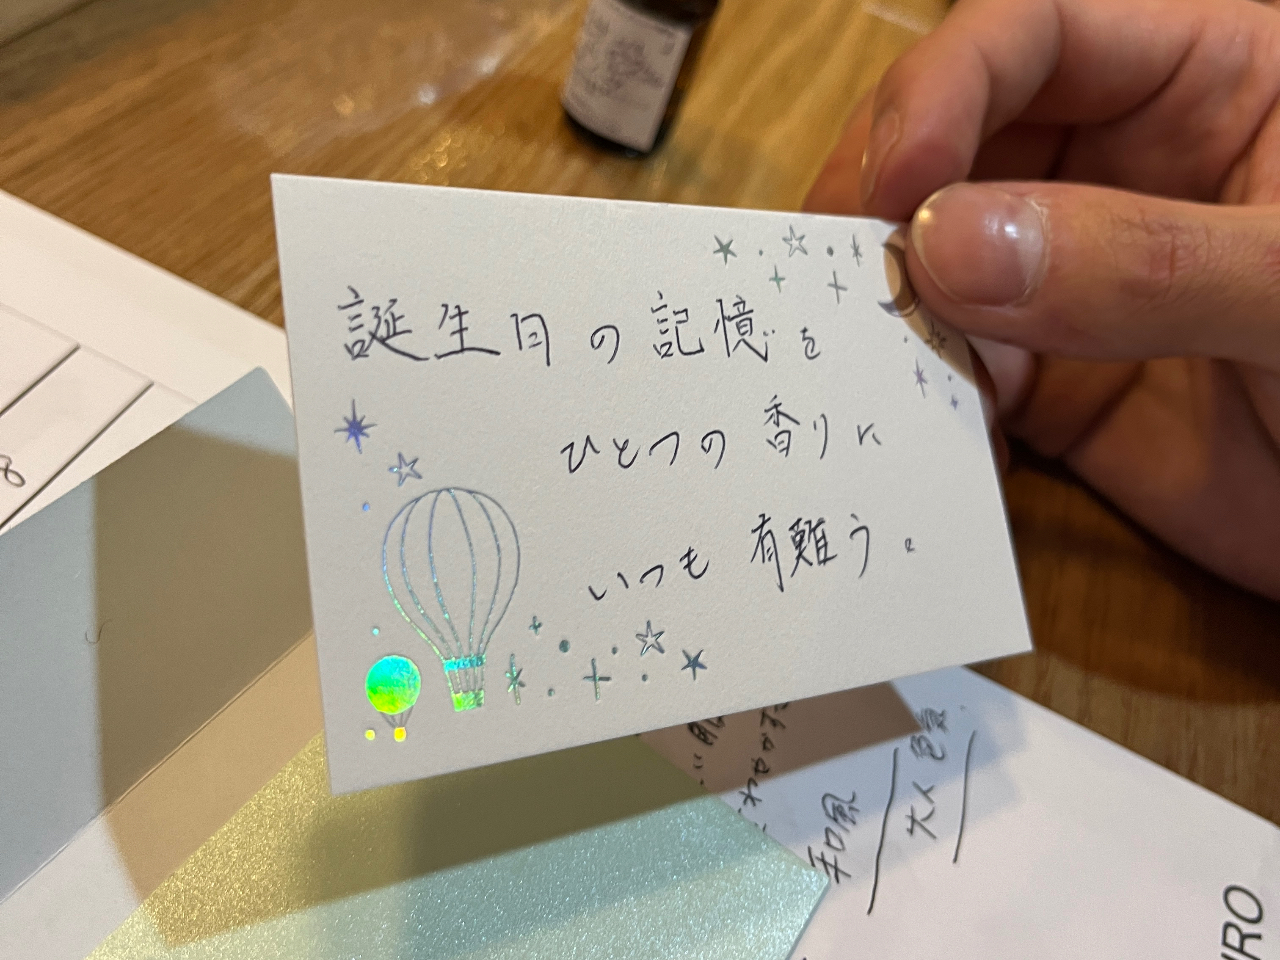 誕生日の記憶を
ひとつの香りに
いつも有難う。
和風
大人色気
8